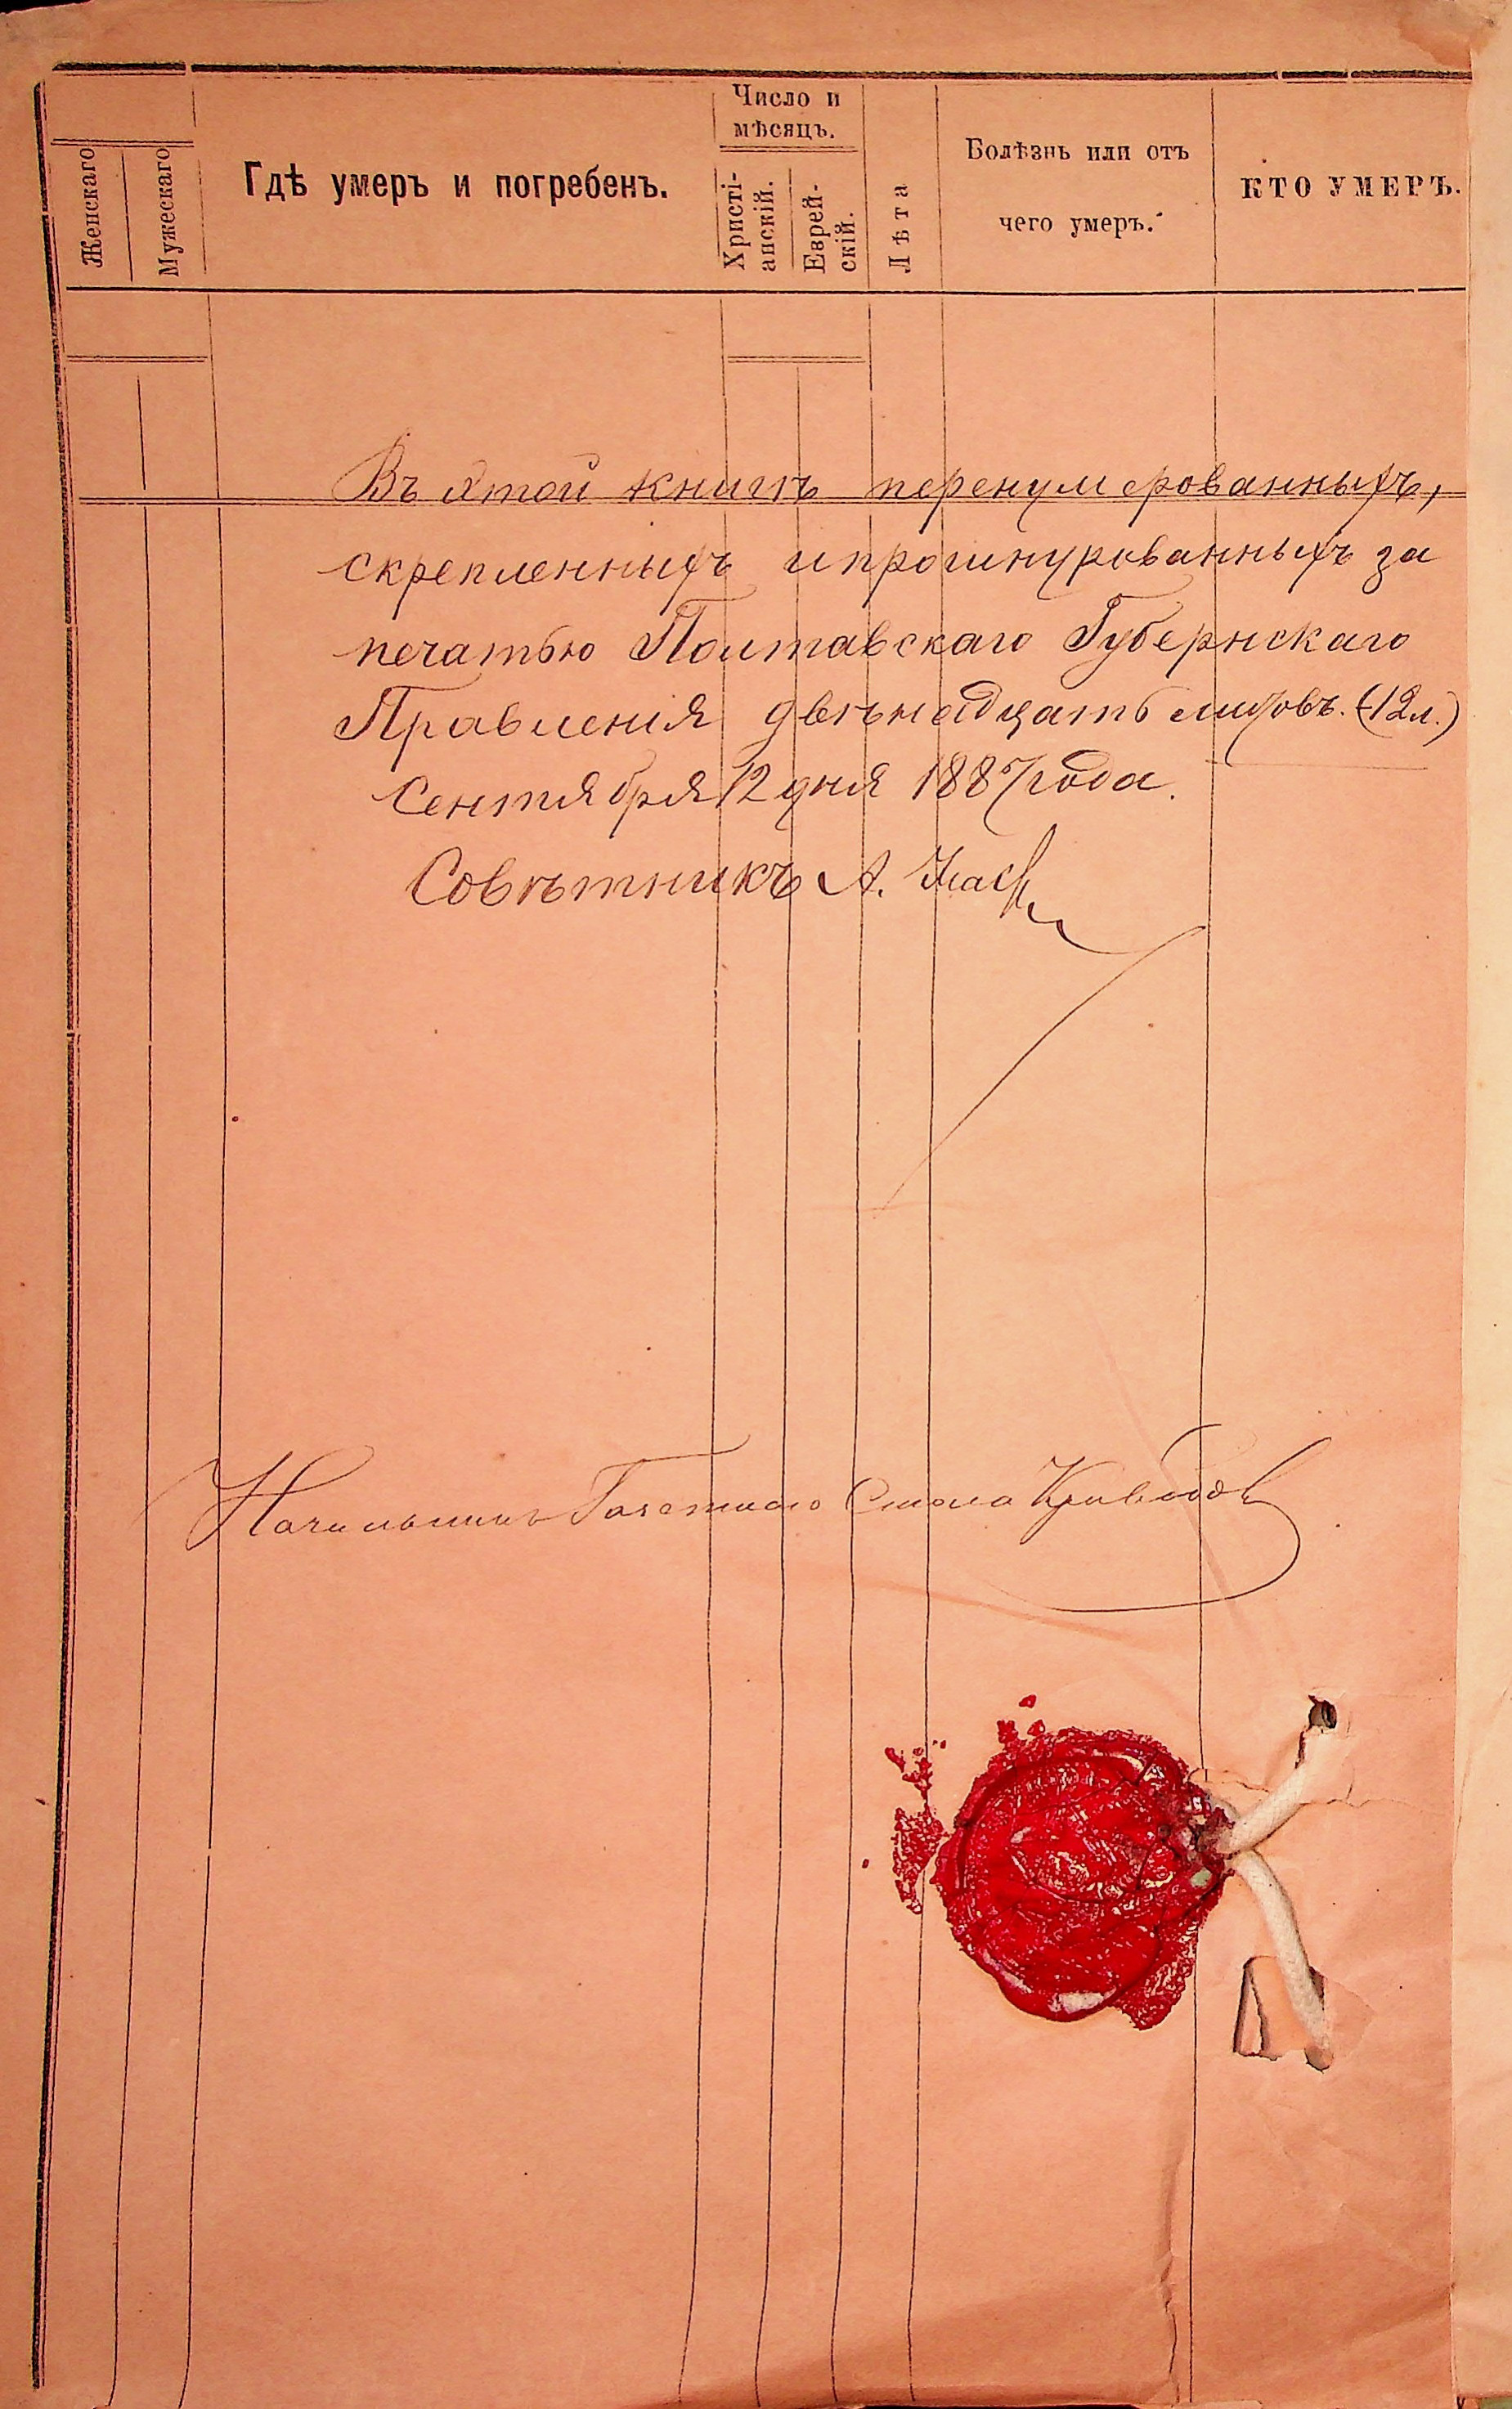 Женскаго
Мужескаго
Гдѣ умеръ и погребенъ.
Число и
мѣсяцъ.
Христі-
анскій.
Еврей-
скій.
Лѣта
Болѣзнь или отъ
чего умеръ.
КТО УМЕРЪ.
Въ этой книгѣ перенумерованныхъ,
скрепленныхъ и прошнурованныхъ за
печатью Полтавскаго Губернскаго
Правленія двѣнадцать листовъ. (12 л.)
Сентября 12 дня 1887 года.
Совѣтникъ А.
Начальникъ Газетнаго Стола